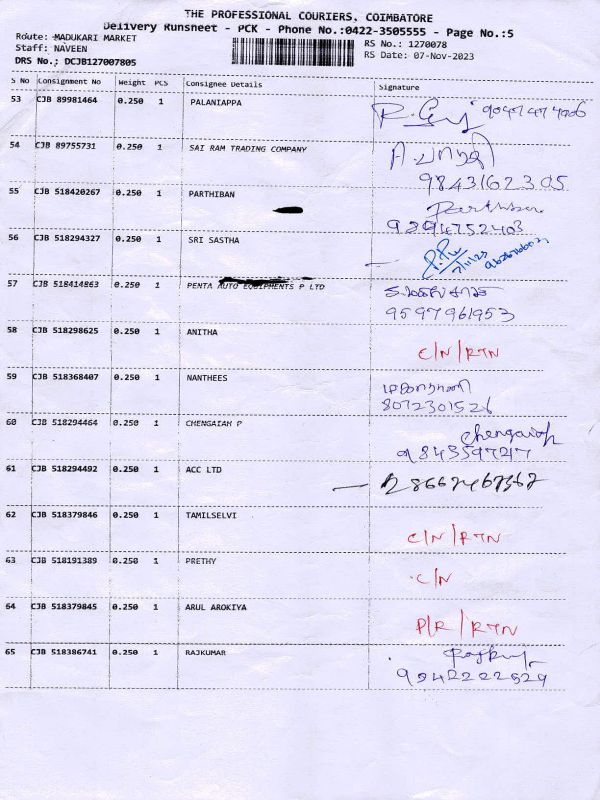 THE PROFESSIONAL COURIERS, COIMBATORE
Delivery Runsheet - PCK - Phone No.:0422-3505555 - Page No.:5
Route: MADUKARI MARKET
RS No.: 1270078
Staff: NAVEEN
RS Date: 07-Nov-2023
DRS No.: DCJB127007805
S No Consignment No Weight PCS Consignee Details Signature
53 CJB 89981464 0.250 1 PALANIAPPA
54 CJB 89755731 0.250 1 SAI RAM TRADING COMPANY
9843162305
55 CJB 518420267 0.250 1 PARTHIBAN Parthiban
9894752403
56 CJB 518294327 0.250 1 SRI SASTHA
7/11/23
57 CJB 518414863 0.250 1 PENTA AUTO EQUIPMENTS P LTD
9597961953
58 CJB 518298625 0.250 1 ANITHA
C/N/RTN
59 CJB 518368407 0.250 1 NANTHEES
8072301526
60 CJB 518294464 0.250 1 CHENGAIAH P
Chengaiah
9843597217
61 CJB 518294492 0.250 1 ACC LTD
62 CJB 518379846 0.250 1 TAMILSELVI
C/N/RTN
63 CJB 518191389 0.250 1 PRETHY
C/N
64 CJB 518379845 0.250 1 ARUL AROKIYA
P/R/RTN
65 CJB 518386741 0.250 1 RAJKUMAR
9842222529